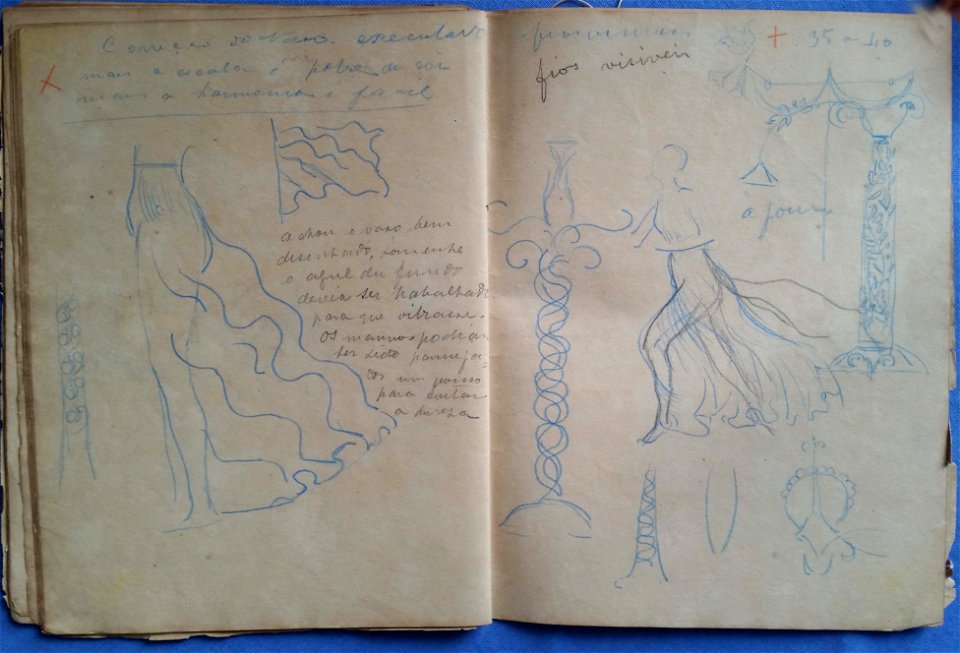 Correção do vaso. executado
mais a escala é pobre de côr
mais a harmonia é facil
achou o vaso bem
desenhado, com enho
o azul du fundo
devia ser trabalhado
para que vibrasse.
os mesmos podiam
ser sido
dos um pouco
para evitar
a dureza
fios visiveis
+ 35 a 40
a jour